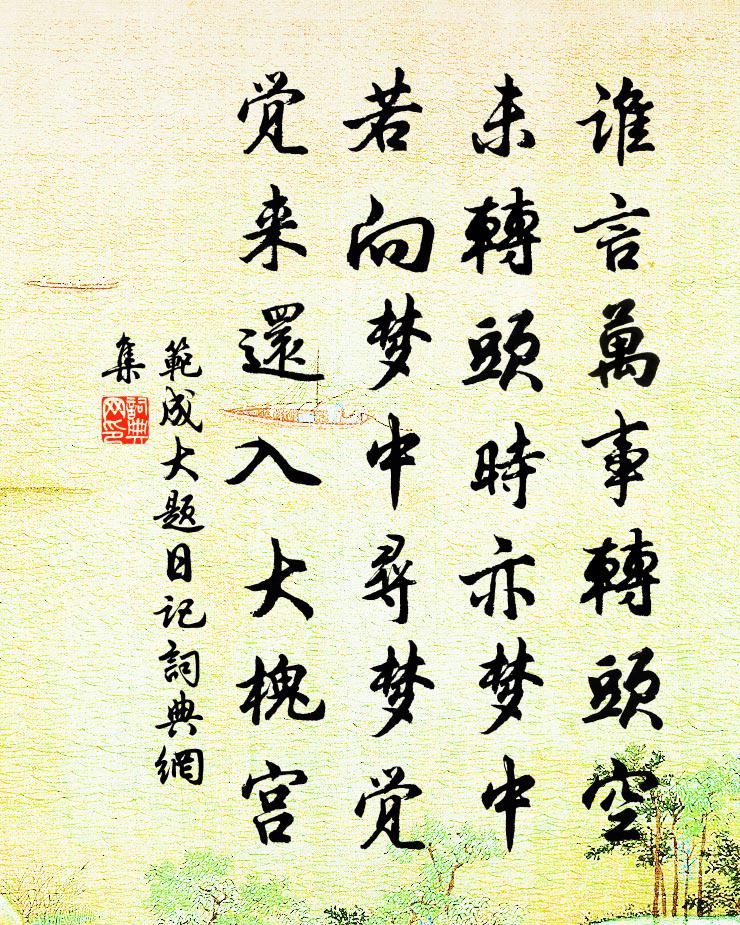 谁言萬事轉頭空
未轉頭時亦梦中
若向梦中尋梦觉
觉来還入大槐宫
範成大题日记詞典網
集
詞典
网印